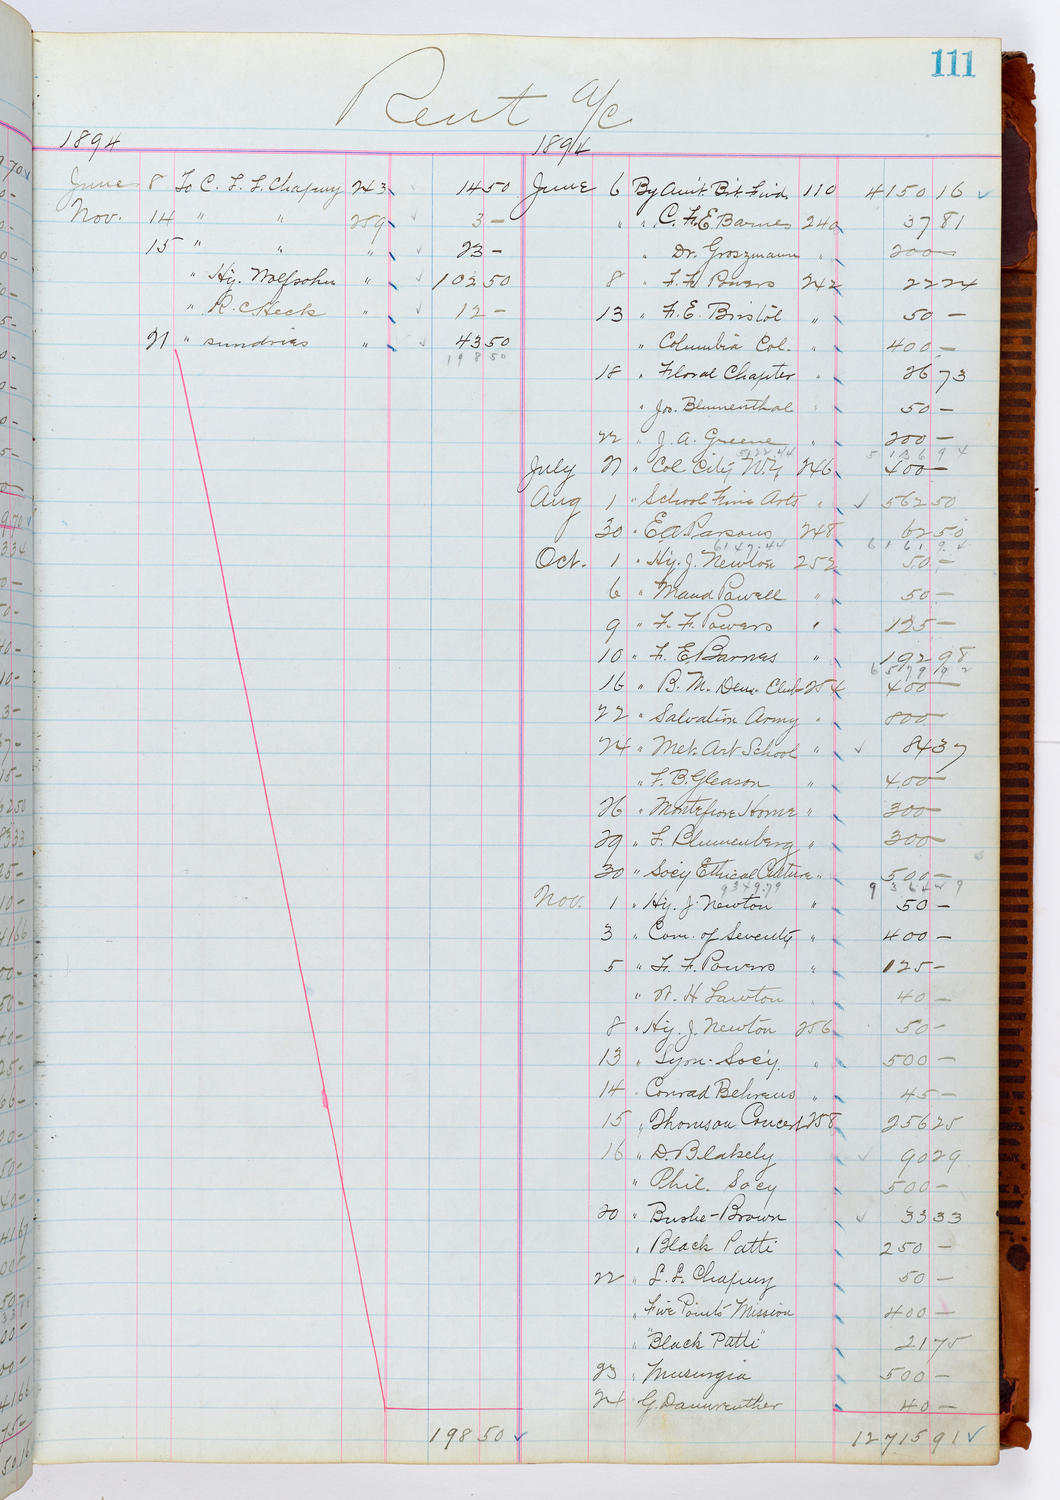 111
Rent a/c
1894
June 8 To C. F. F. Chapuy 243 14 50
Nov. 14 " " 259 3 –
15 " " " 23 –
" Hy. Wolfsohn " 102 50
" R. C. Heck " 12 –
21 " sundries " 43 50
198 50
198 50
1894
June 6 By Am't. Bt. Fwd. 110 4150 16
" " C. F. E Barnes 240 37 81
" Dr. Groszmann " 200 –
8 " F. F. Powers 242 22 24
13 " F. E. Bristol " 50 –
" Columbia Col. " 400 –
18 " Floral Chapter " 26 73
" Jos. Blumenthal " 50 –
22 " J. A. Greene " 200 –
5122.44 5136 94
July 2 " Col. City N.Y. 246 400 –
Aug 1 " School Fine Arts " 562 50
30 " E A Parsons 248 62 50
6147.44 6161.94
Oct. 1 " Hy. J. Newton 252 50 –
6 " Maud Powell " 50 –
9 " F. F. Powers " 125 –
10 " F. E Barnes " 192 98
6579 92
16 " B. M. Dem. Club 254 400 –
22 " Salvation Army " 800 –
24 " Met. Art School " 84 37
" F. B. Gleason " 400 –
26 " Montefiore Home " 300 –
29 " F. Blumenberg " 300 –
30 " Soc'y Ethical Culture " 500 –
9349.79 9364 29
Nov. 1 " Hy. J. Newton " 50 –
3 " Com. of Seventy " 400 –
5 " F. F. Powers " 125 –
" W. H Lawton " 40 –
8 " Hy. J. Newton 256 50 –
13 " Sym. Soc'y. " 500 –
14 " Conrad Behrens " 45 –
15 " Thomson Concert 258 256 25
16 " D. Blakely 90 29
" Phil. Socy 500 –
20 " Bushe-Brown 33 33
" Black Patti 250 –
22 " L. F. Chapuy 50 –
" Five Points Mission 400 –
" "Black Patti" 21 75
23 " Musurgia 500 –
24 G. Dannreuther 40 –
12715 91